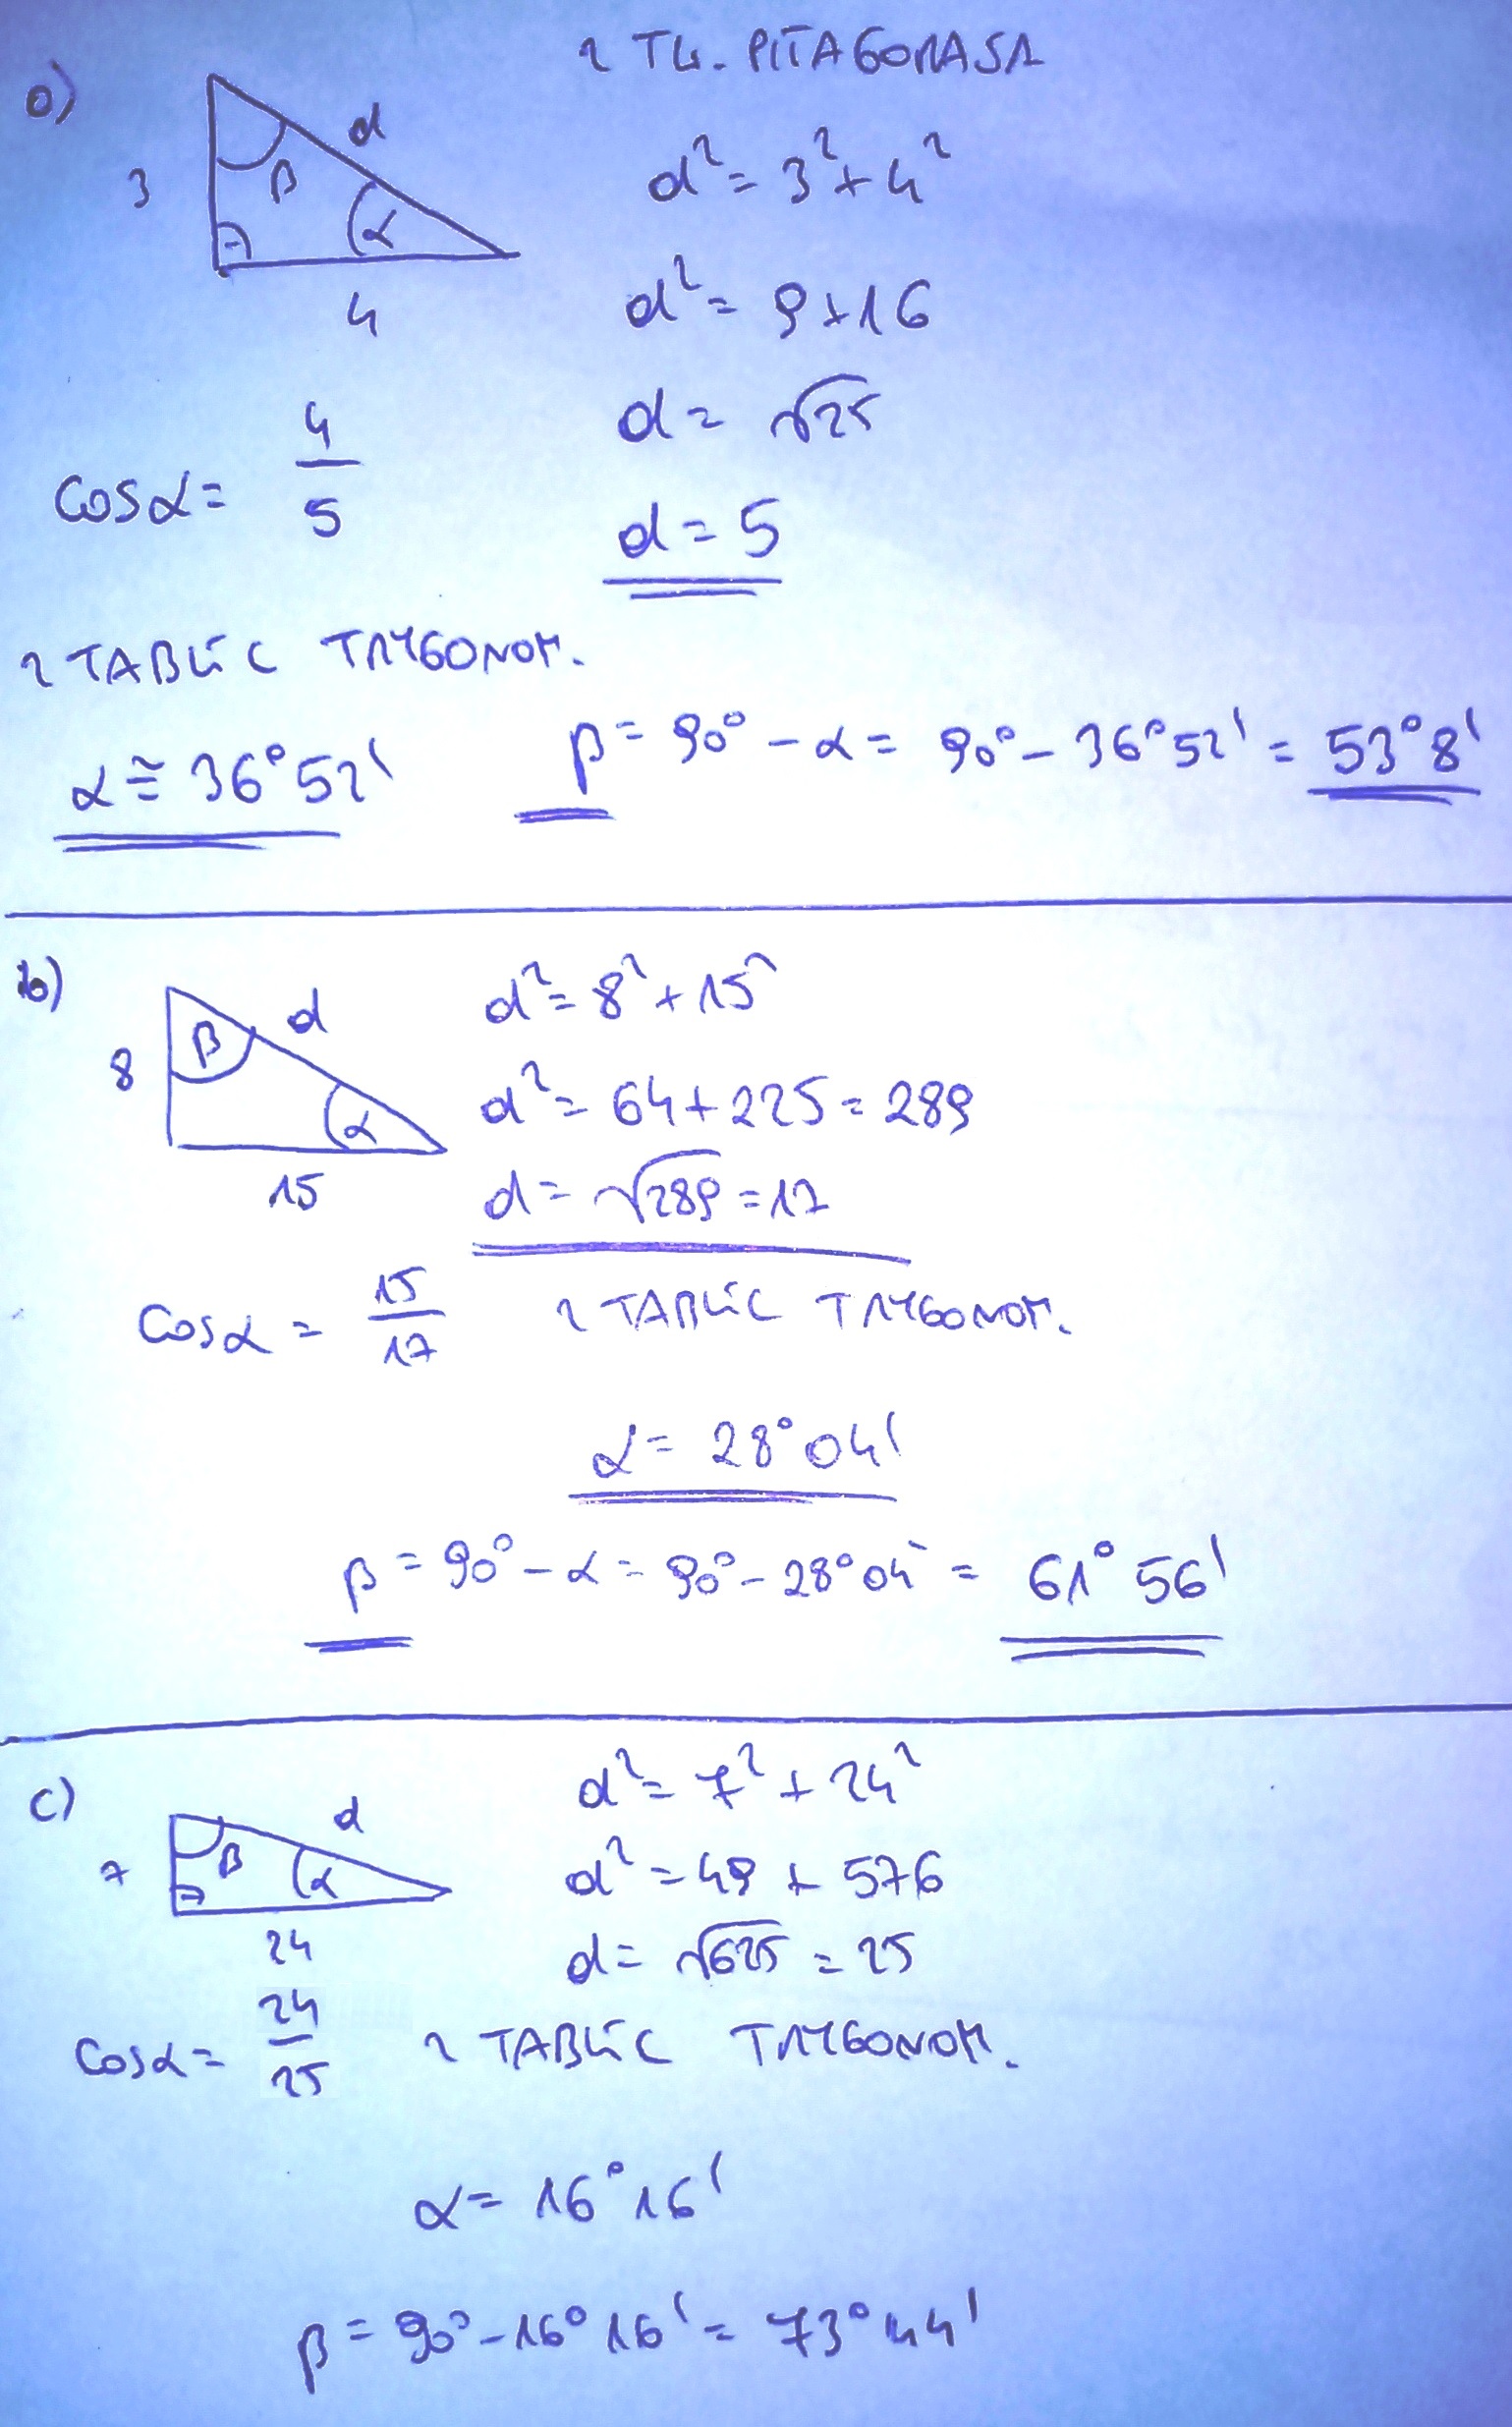 a)
z TW. PITAGORASA
3
β
d
α
4
d² = 3² + 4²
d² = 9 + 16
d = √25
d = 5
cosα = 4/5
z TABLIC TRYGONOM.
α ≅ 36°52'
β = 90° - α = 90° - 36°52' = 53°8'
b)
8
β
d
α
15
d² = 8² + 15²
d² = 64 + 225 = 289
d = √289 = 17
cosα = 15/17
z TABLIC TRYGONOM.
α = 28°04'
β = 90° - α = 90° - 28°04' = 61°56'
c)
7
β
d
α
24
d² = 7² + 24²
d² = 49 + 576
d = √625 = 25
cosα = 24/25
z TABLIC TRYGONOM.
α = 16°16'
β = 90° - 16°16' = 73°44'